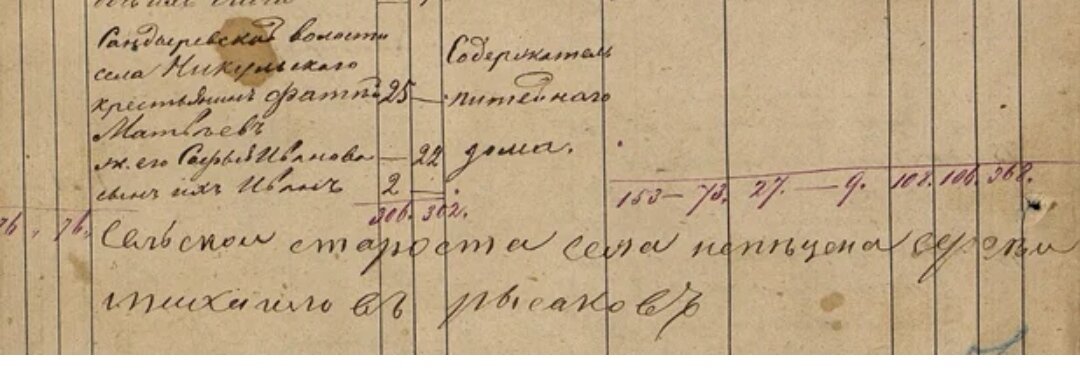 Сандыревской волости
села Никульского
крестьянин 25 — Содержатель питейнаго дома.
Матвеевъ
ж. его Софья Иванова — 22
сынъ ихъ Иванъ 2 —
306. 302. 153 — 73. 27. — 9. 108. 106. 368.
76. 76.
Сельской староста села непецена сергеи
михаиловъ рысаковъ